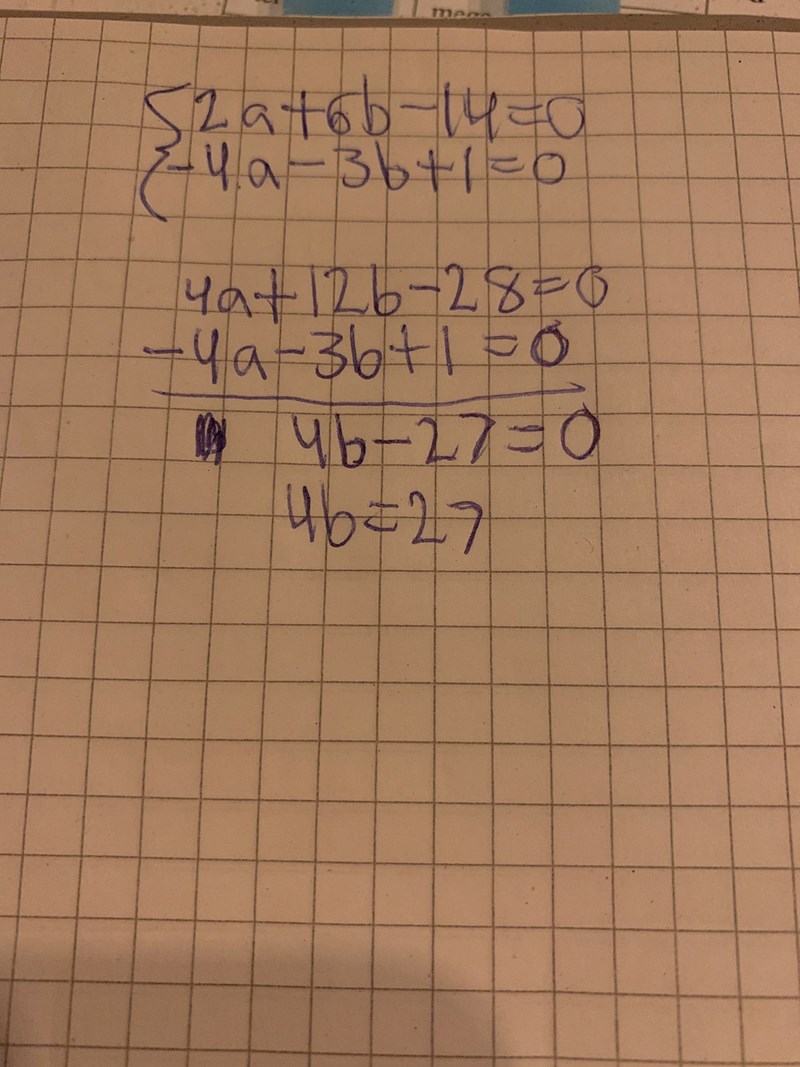 2a+6b-14=0
-4a-3b+1=0
4a+12b-28=0
-4a-3b+1=0
4b-27=0
4b=27